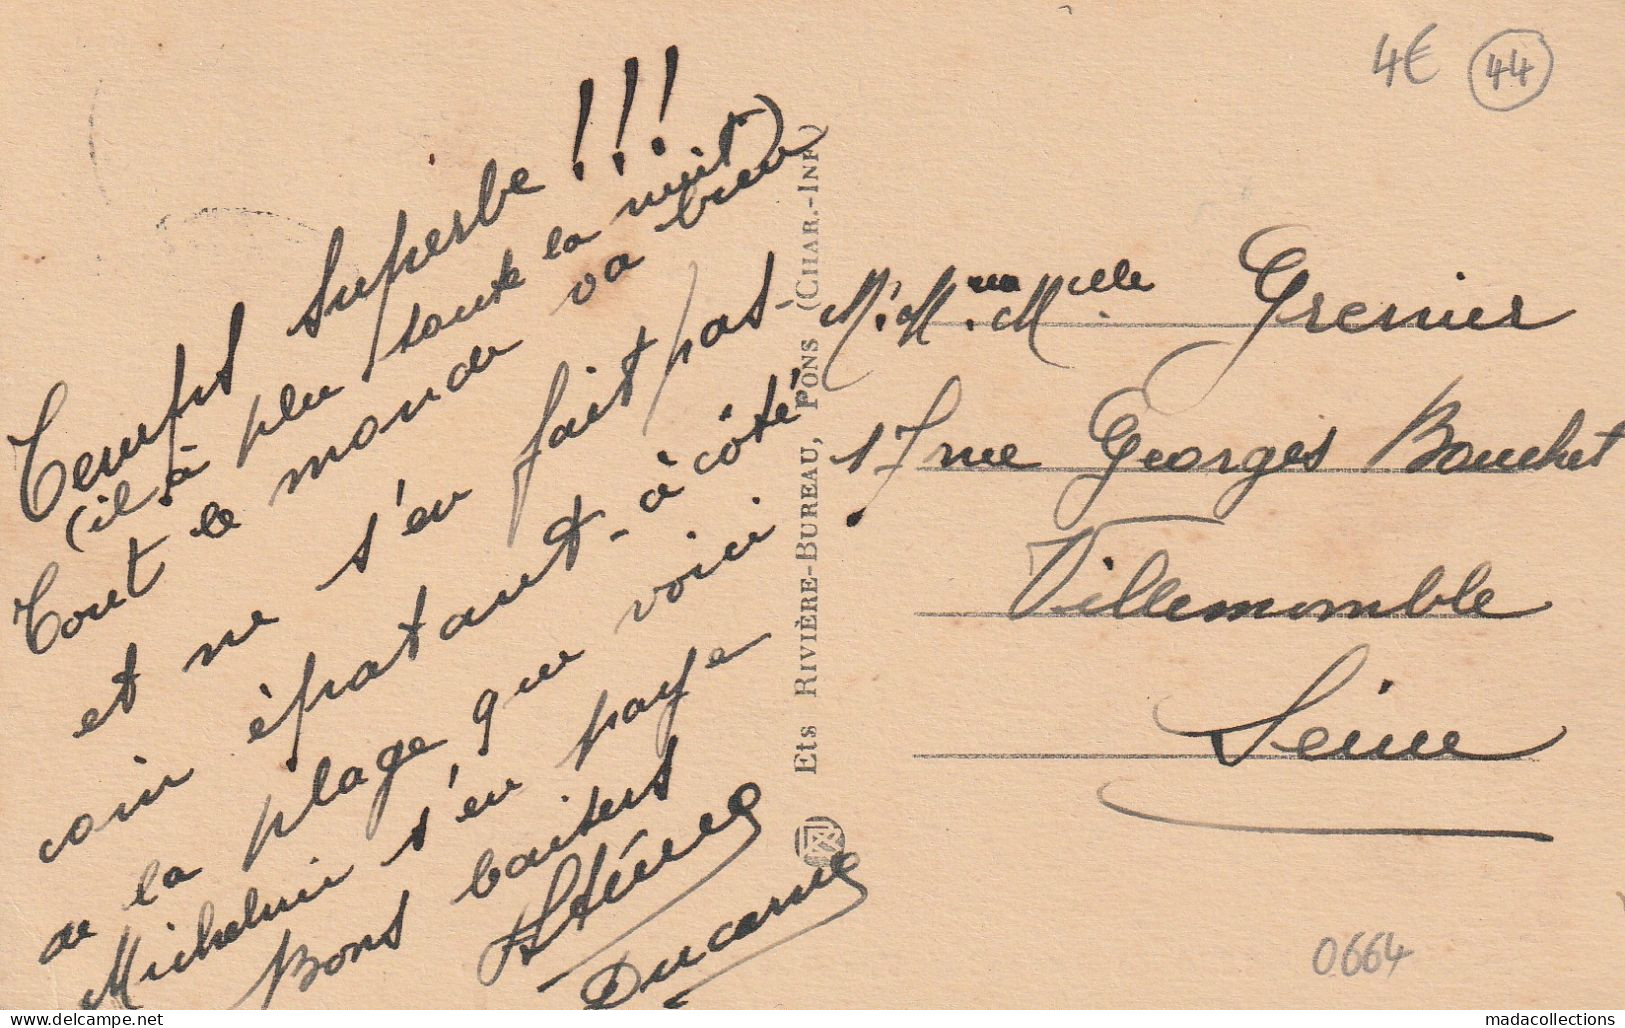 Temps superbe !!!
(il à plu toute la nuit)
Tout le monde va bien
et ne s'en fait pas -
coin épatant - à côté
de la plage que voici .
Michelini s'en paye
Bons baisers
Ducarne
Mr. Mme. Melle. Grenier
17 rue Georges Bouchet
Villemomble
Seine
Ets RIVIÈRE-BUREAU, PONS (CHAR.-INF.)
4€ 44
0664
www.delcampe.net
madacollections